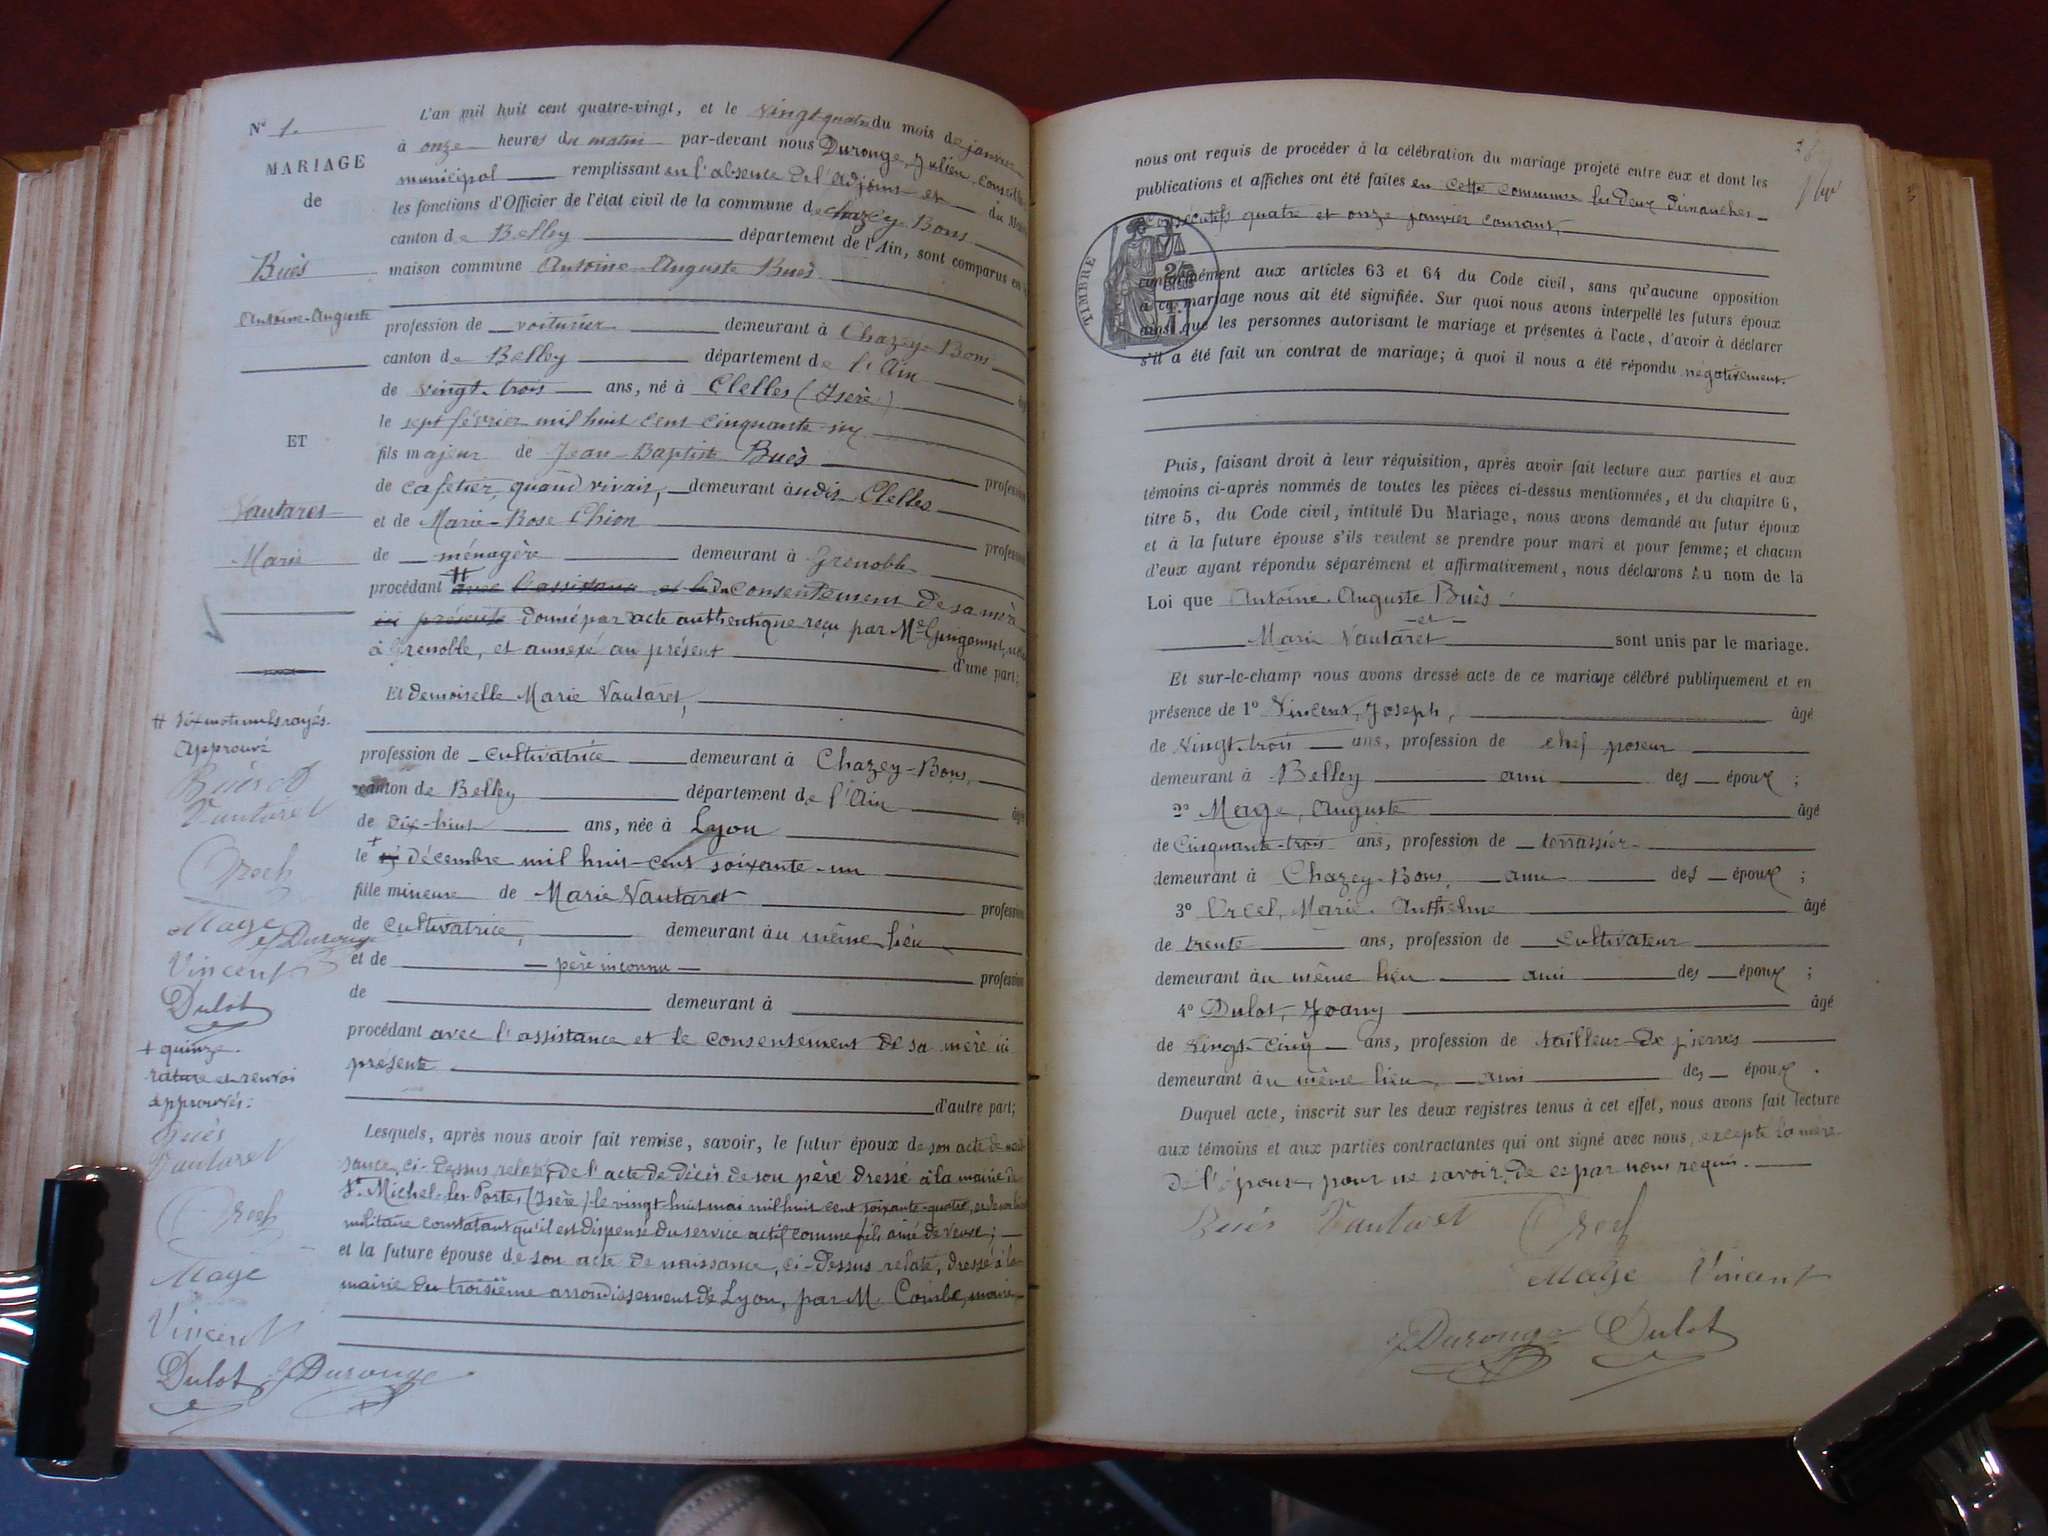 N° 1.
MARIAGE
de
Buès
Antoine-Auguste
ET
Vautaret
Marie
L'an mil huit cent quatre-vingt, et le vingt-quatre du mois de janvier
à onze heures du matin par-devant nous Durouge, Julien, conseiller
municipal remplissant en l'absence de l'adjoint et du Maire
les fonctions d'Officier de l'état civil de la commune de Chazey-Bons
canton de Belley département de l'Ain, sont comparus en la
maison commune Antoine-Auguste Buès
profession de voiturier demeurant à Chazey-Bons
canton de Belley département de l'Ain
âgé
de vingt-trois ans, né à Clelles (Isère)
le sept février mil huit cent cinquante-six
fils majeur de Jean-Baptiste Buès
profession
de cafetier, quand vivait, demeurant à udit Clelles
et de Marie-Rose Chion
profession
de ménagère demeurant à Grenoble
procédant # avec l'assistance et le du consentement de sa mère
ici présente donné par acte authentique reçu par Me
à Grenoble, et annexé au présent d'une part;
Et demoiselle Marie Vautaret,
profession de cultivatrice demeurant à Chazey-Bons,
canton de Belley département de l'Ain
âgé
de dix-huit ans, née à Lyon
le + décembre mil huit cent soixante-un
fille mineure de Marie Vautaret
profession
de cultivatrice, demeurant à u même lieu
et de père inconnu
profession
de demeurant à
procédant avec l'assistance et le consentement de sa mère ici
présente
d'autre part;
Lesquels, après nous avoir fait remise, savoir, le futur époux de son acte de nais-
sance, ci-dessus relaté, de l'acte de décès de son père dressé à la mairie de
St Michel-les-Portes, (Isère) le vingt-huit mai mil huit cent soixante-quatre, et de son livret
militaire constatant qu'il est dispensé du service actif comme fils aîné de veuve;
et la future épouse de son acte de naissance, ci-dessus relaté, dressé à la
mairie du troisième arrondissement de Lyon, par M. Combe, maire,
# Dix mots nuls rayés.
Approuvé
Buès
Vautaret
Mage
J Durouge
Vincent
Dulot
+ quinze.
rature et renvoi
approuvés:
Buès
Vautaret
Mage
Vincent
Dulot J Durouge
nous ont requis de procéder à la célébration du mariage projeté entre eux et dont les
publications et affiches ont été faites en cette commune les deux dimanches
consécutifs quatre et onze janvier courant,
TIMBRE
conformément aux articles 63 et 64 du Code civil, sans qu'aucune opposition
à ce mariage nous ait été signifiée. Sur quoi nous avons interpellé les futurs époux
ainsi que les personnes autorisant le mariage et présentes à l'acte, d'avoir à déclarer
s'il a été fait un contrat de mariage; à quoi il nous a été répondu négativement.
Puis, faisant droit à leur réquisition, après avoir fait lecture aux parties et aux
témoins ci-après nommés de toutes les pièces ci-dessus mentionnées, et du chapitre 6,
titre 5, du Code civil, intitulé Du Mariage, nous avons demandé au futur époux
et à la future épouse s'ils veulent se prendre pour mari et pour femme; et chacun
d'eux ayant répondu séparément et affirmativement, nous déclarons Au nom de la
Loi que Antoine-Auguste Buès
et
Marie Vautaret sont unis par le mariage.
Et sur-le-champ nous avons dressé acte de ce mariage célébré publiquement et en
présence de 1° Vincent, Joseph, âgé
de vingt-trois ans, profession de chef poseur
demeurant à Belley ami des époux ;
2° Mage, Auguste âgé
de Cinquante-trois ans, profession de terrassier
demeurant à Chazey-Bons, ami des époux ;
3° Marie-Anthelme âgé
de trente ans, profession de cultivateur
demeurant à u même lieu ami des époux ;
4° Dulot, Joany âgé
de vingt-cinq ans, profession de tailleur de pierres
demeurant à u même lieu, ami des époux .
Duquel acte, inscrit sur les deux registres tenus à cet effet, nous avons fait lecture
aux témoins et aux parties contractantes qui ont signé avec nous, excepté la mère
de l'épouse, pour ne savoir, de ce par nous requis.
Buès Vautaret
Mage Vincent
J Durouge Dulot